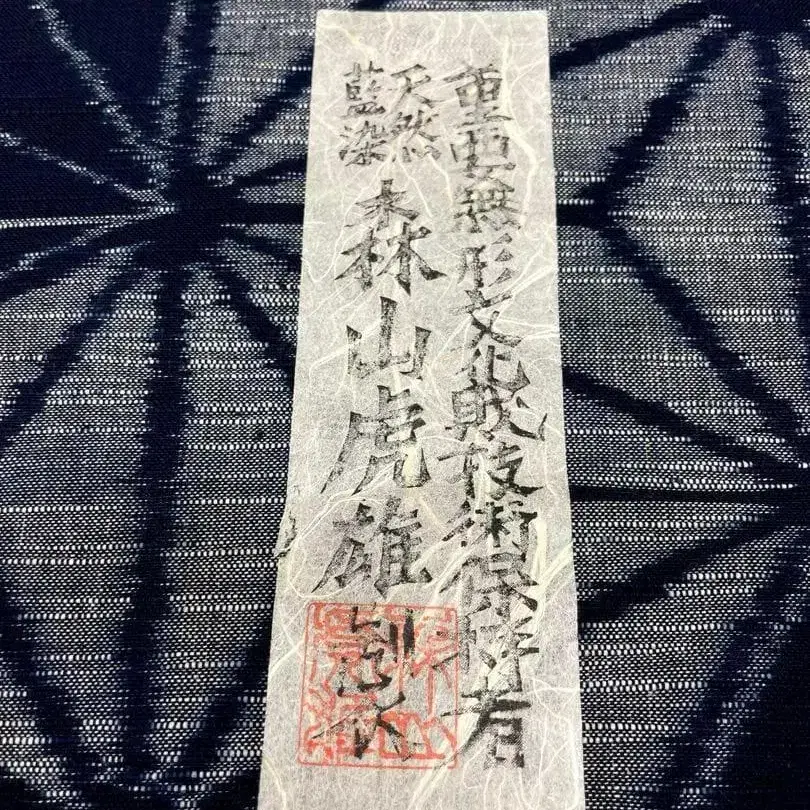 重要無形文化財技術保持者
天然
藍染
森山虎雄